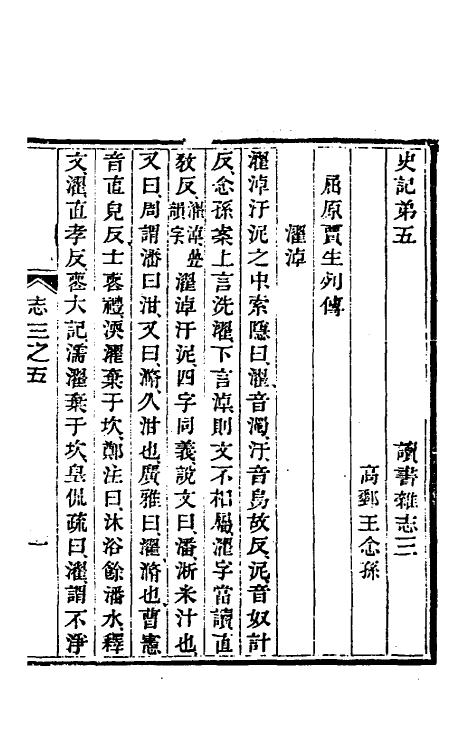 史記弟五　讀書雜志三
高郵王念孫
屈原賈生列傳
濯淖
濯淖汙泥之中索隱曰濯音濁汙音烏故反泥音奴計
反念孫案上言洗濯下言淖則文不相屬濯字當讀直
敎反濯淖疊韻字濯淖汙泥四字同義說文曰潘淅米汁也
又曰周謂潘曰泔又曰滫久泔也廣雅曰濯滫也曹憲
音直皃反士喪禮渜濯棄于坎鄭注曰沐浴餘潘水釋
文濯直孝反喪大記濡濯棄于坎皇侃疏曰濯謂不淨
志三之五
一